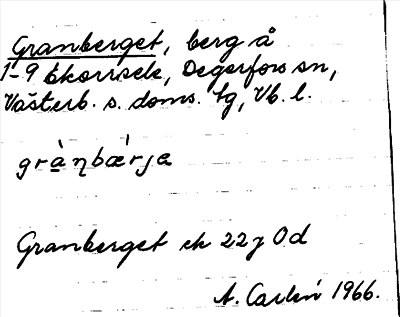 Granberget, berg å
1-9 Ekorrsele, Degerfors sn,
Västerb. s. doms. tg, Vb. l.
grànbærja
Granberget ek 22 j Od
A. Carlin 1966.